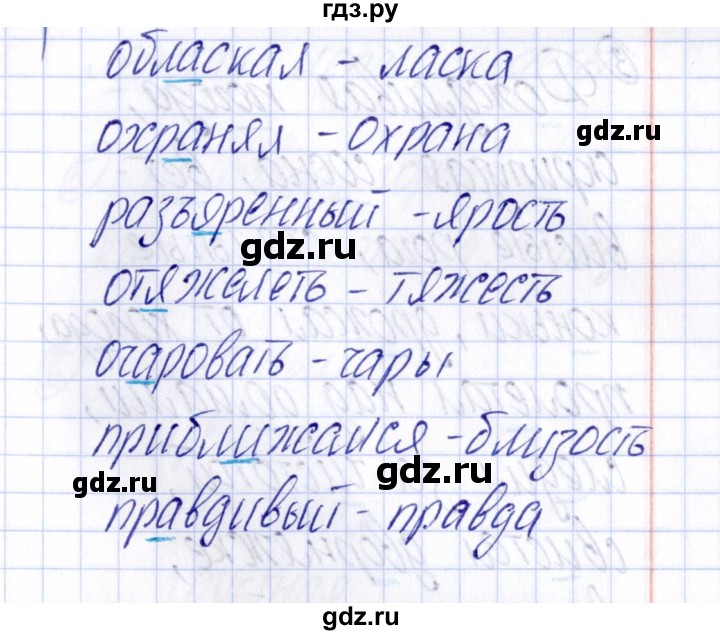 гдз.ру
обласкал - ласка
охранял - охрана
gdz.ru
разъяренный - ярость
gdz.ru
отяжелеть - тяжесть
очаровать - чары
приближался - близость
gdz.ru
gdz.ru
правдивый - правда
gdz.ru